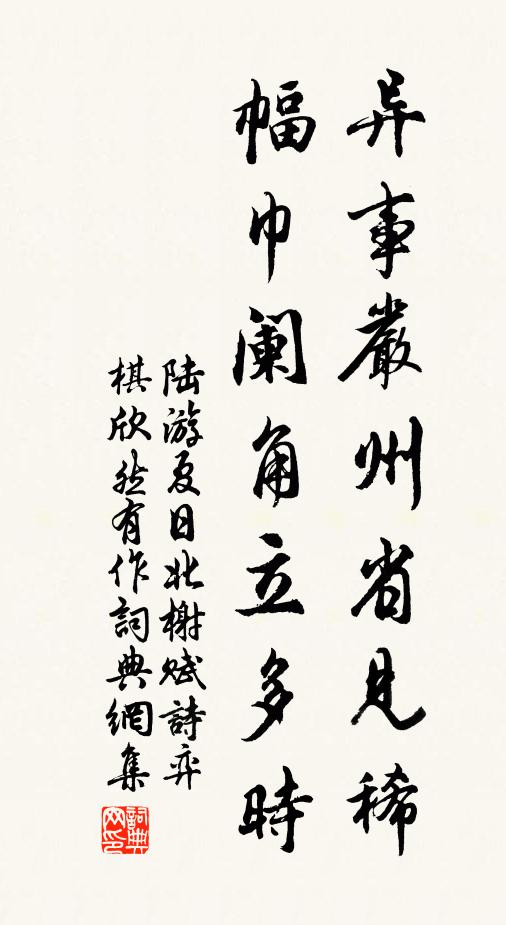 异事嚴州省見稀
幅巾阑角立多時
陆游夏日北榭賦詩弈
棋欣然有作詞典網集
詞典
网印